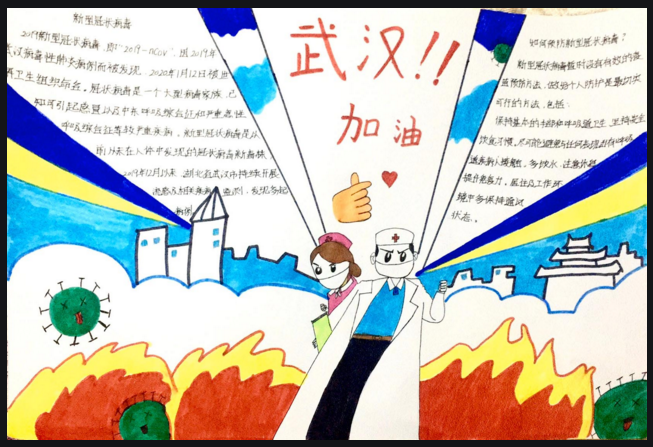 新型冠状病毒
2019新型冠状病毒,即"2019-nCoV",因2019年
武汉病毒性肺炎病例而被发现,2020年1月12日被世
界卫生组织命名。冠状病毒是一个大型病毒家族,已
知可引起感冒以及中东呼吸综合征和严重急性
呼吸综合征等较严重疾病。新型冠状病毒是从
前从未在人体中发现的冠状病毒新毒株。
2019年12月以来,湖北省武汉市持续开展
监测,发现多起
病例
武汉!!
加油
如何预防新型冠状病毒?
新型冠状病毒暂时没有有效的
预防方法,做好个人防护是最切实
可行的方法,包括:
保持基本的手部和呼吸道卫生,坚持安全
饮食习惯,尽可能避免与任何表现出有呼吸
多饮水,注意休息
提升免疫力,居住及工作环
境中多保持通风
状态。